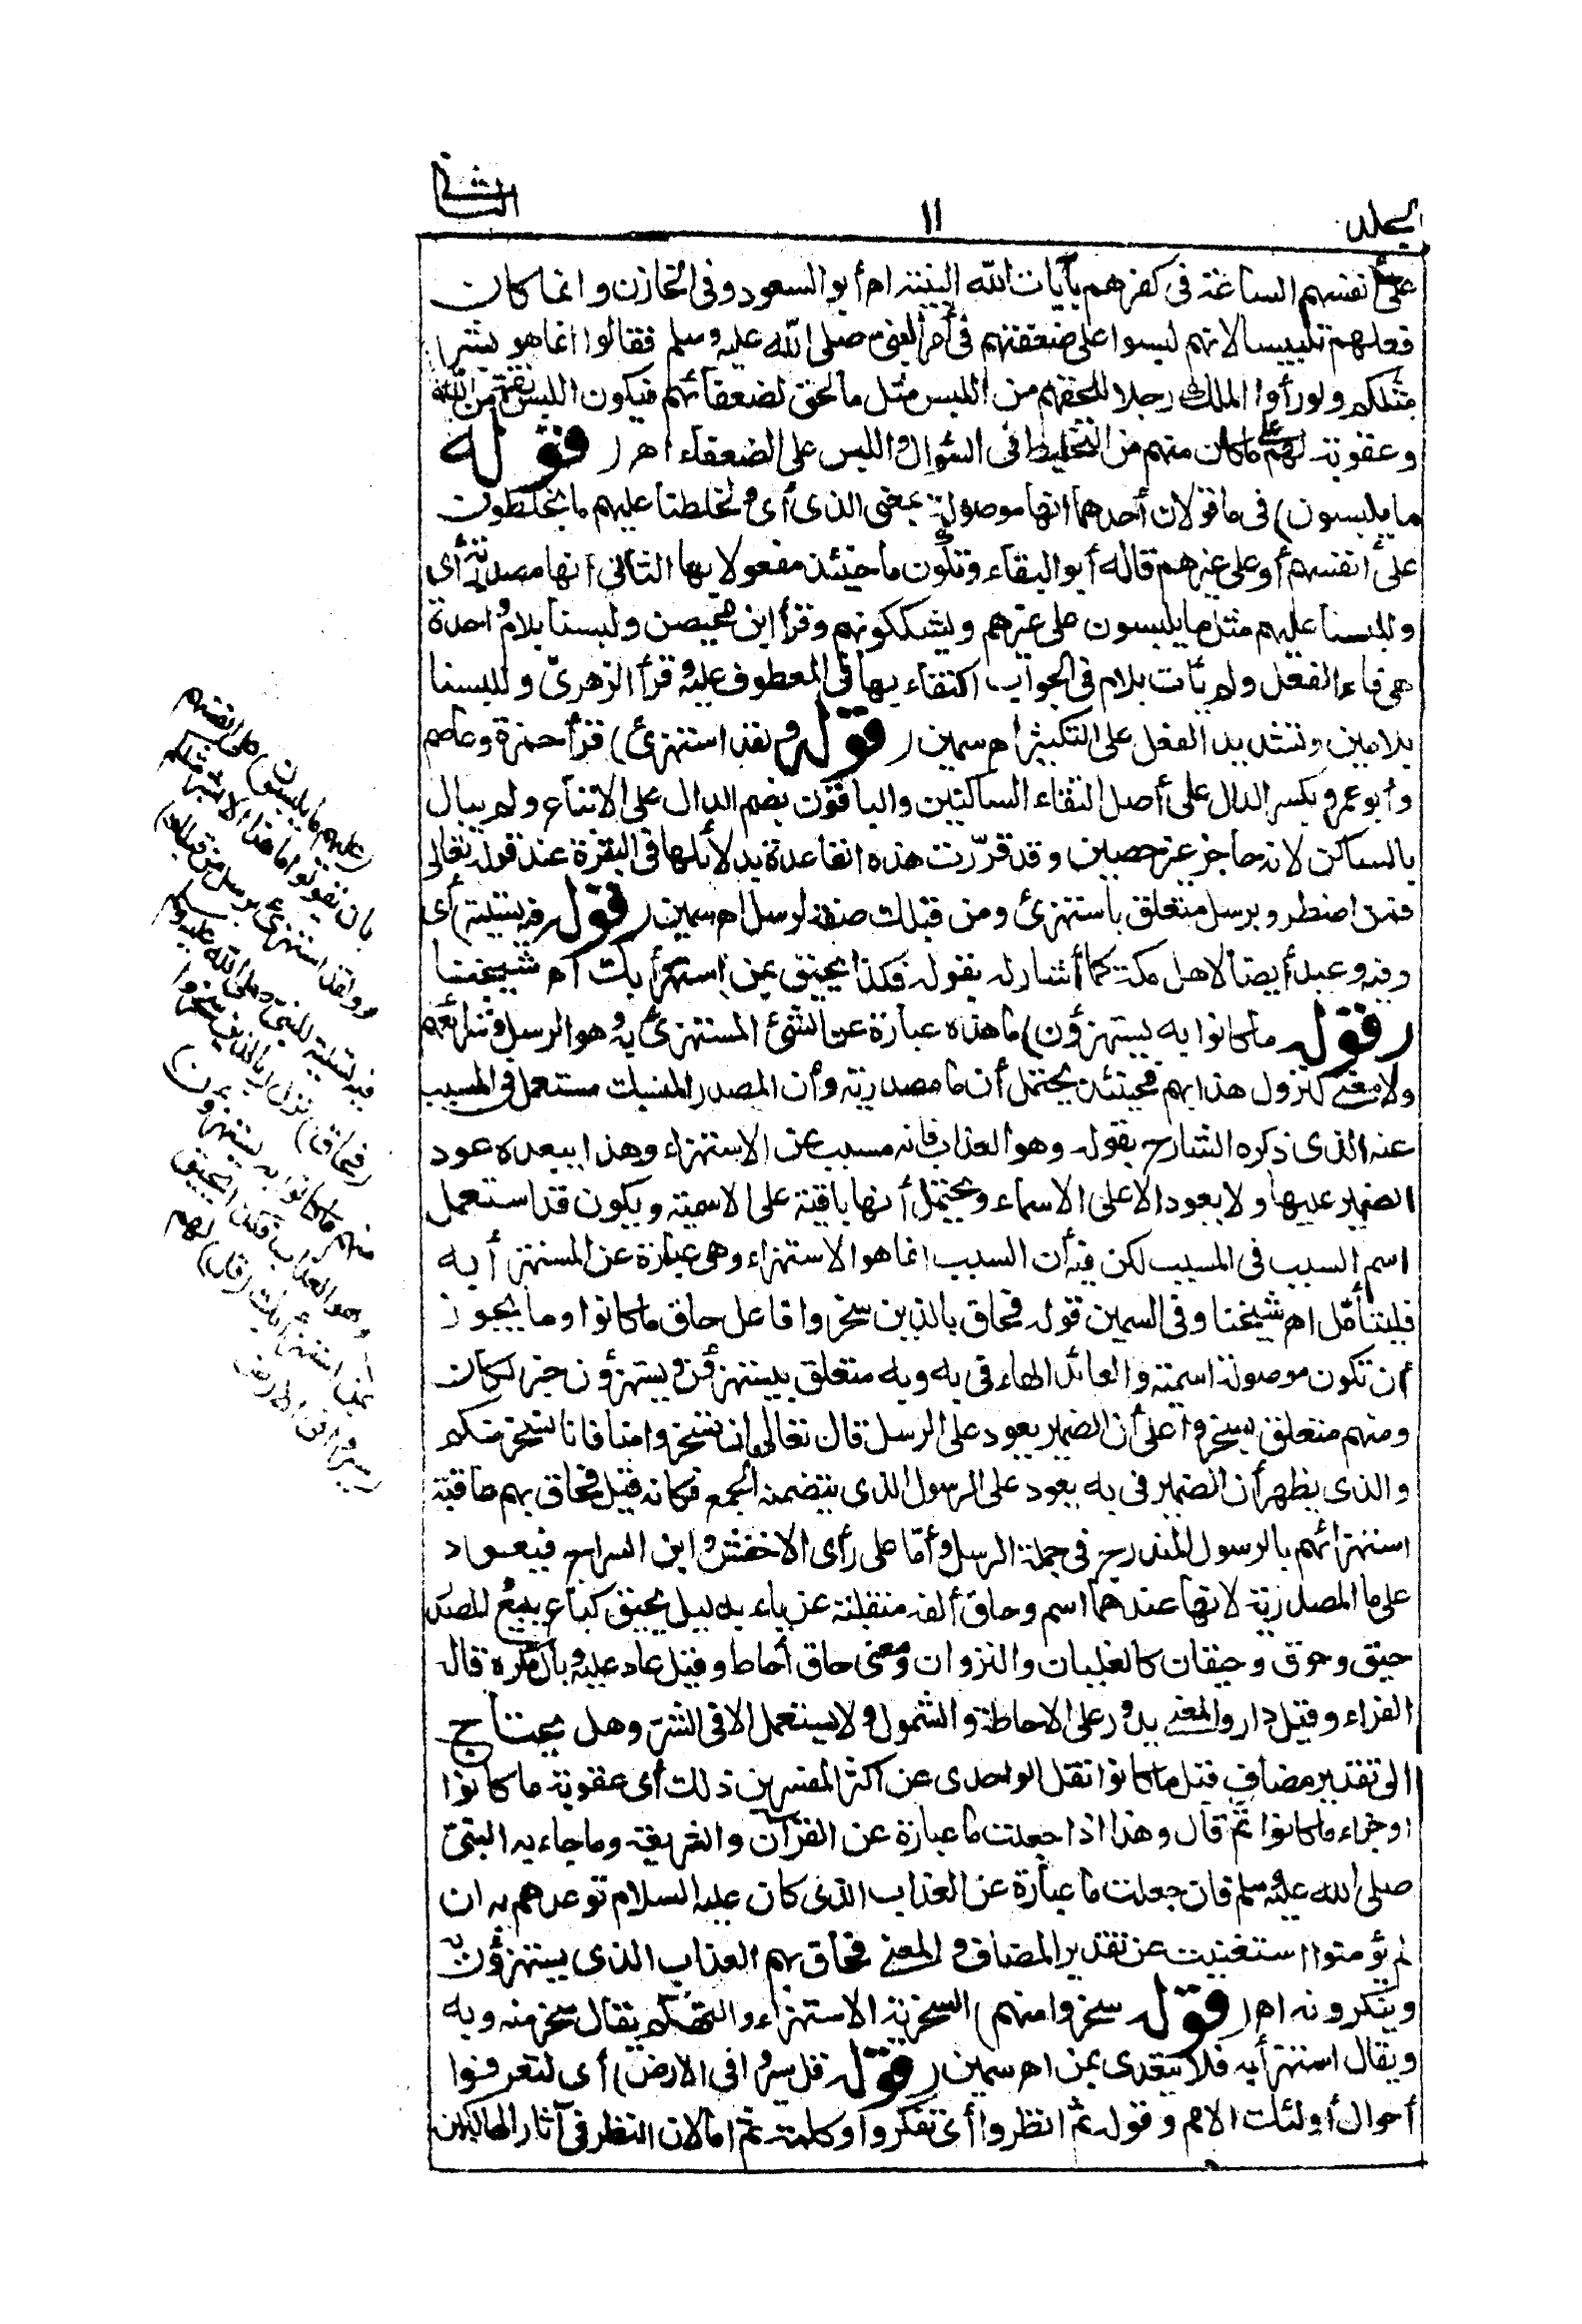 المجلد ١١ الثانى
على أنفسهم الساعة فى كفرهم بآيات الله البينة اه أبو السعود وفى الخازن وانما كان
فعلهم تلبيسا لانهم لبسوا على ضعفتهم فى أمر النبى صلى الله عليه وسلم فقالوا انما هو بشر
مثلكم ولو رأوا الملك رجلا للحقهم من اللبس مثل ما لحق لضعفائهم فيكون اللبس نقمة من الله
وعقوبة لهم على ما كان منهم من التخليط فى السؤال واللبس على الضعفاء اه (قوله
ما يلبسون) فى ما قولان أحدهما انها موصولة بمعنى الذى أى ولخلطنا عليهم ما يخلطون
على أنفسهم أو على غيرهم قاله أبو البقاء وتكون ما حينئذ مفعولا بها الثانى انها مصدرية أى
وللبسنا عليهم مثل ما يلبسون على غيرهم ويشككونهم وقرأ ابن محيصن ولبسنا بلام واحدة
هى فاء الفعل ولم يأت بلام فى الجواب اكتفاء بها فى المعطوف عليه وقرأ الزهرى وللبسنا
بلامين وتشديد الفعل على التكثير اه سمين (قوله ولقد استهزئ) قرأ حمزة وعاصم
وأبو عمرو بكسر الدال على أصل التقاء الساكنين والباقون بضم الدال على الاتباع ولم يبال
بالساكن لانه حاجز غير حصين وقد قررت هذه القاعدة بدلائلها فى البقرة عند قوله تعالى
فمن اضطر وبرسل متعلق باستهزئ ومن قبلك صفة لرسل اه سمين (قوله فيه تسلية) أى
وفيه وعيد أيضا لاهل مكة كما أشار له بقوله فكذا يحيق بمن استهزأ بك اه شيخنا
(قوله ما كانوا به يستهزؤن) ما هذه عبارة عن الشئ المستهزئ به وهو الرسل وشرائعهم
ولا معنى لنزول هذا بهم فحينئذ يحتمل أن ما مصدرية وأن المصدر المنسبك مستعمل فى المسبب
عنه الذى ذكره الشارح بقوله وهو العذاب فانه مسبب عن الاستهزاء وهذا يبعده عود
الضمير عليها ولا يعود الا على الاسماء ويحتمل أنها باقية على الاسمية ويكون قد استعمل
اسم السبب فى المسبب لكن فيه أن السبب انما هو الاستهزاء وهى عبارة عن المستهزأ به
فليتأمل اه شيخنا وفى السمين قوله فحاق بالذين سخروا فاعل حاق ما كانوا وما يجوز
أن تكون موصولة اسمية والعائد الهاء فى به وبه متعلق بيستهزؤن ويستهزؤن خبر لكان
ومنهم متعلق بسخروا على أن الضمير يعود على الرسل قال تعالى ان تسخروا منا فانا نسخر منكم
والذى يظهر أن الضمير فى به يعود على الرسول الذى يتضمنه الجمع فكانه قيل فحاق بهم عاقبة
استهزائهم بالرسول المندرج فى جملة الرسل وأما على رأى الاخفش وابن السراج فيعود
على ما المصدرية لانها عندهما اسم وحاق ألفه منقلبة عن ياء بدليل يحيق كباع يبيع المصدر
حيق وحيوق وحيقان كالغليان والنزوان ومعنى حاق أحاط وقيل عاد عليه وبال مكره قاله
الفراء وقيل دار والمعنى يدور على الاحاطة والشمول ولا يستعمل الا فى الشر وهل يحتاج
الى تقدير مضاف قبل ما كانوا نقل الواحدى عن أكثر المفسرين ذلك أى عقوبة ما كانوا
أو جزاء ما كانوا ثم قال وهذا اذا جعلت ما عبارة عن القرآن والشريعة وما جاء به النبى
صلى الله عليه وسلم فان جعلت ما عبارة عن العذاب الذى كان عليه السلام توعدهم به ان
لم يؤمنوا استغنيت عن تقدير المضاف والمعنى فحاق بهم العذاب الذى يستهزؤن به
وينكرونه اه (قوله سخروا منهم) السخرية الاستهزاء والتهكم يقال سخر منه وبه
ويقال استهزأ به فلا يتعدى بمن اه سمين (قوله قل سيروا فى الارض) أى لتعرفوا
أحوال أولئك الامم وقوله ثم انظروا أى تفكروا وكلمة ثم اما لان النظر فى آثار الهالكين
(عليهم ما يلبسون) على أنفسهم
بان يقولوا ما هذا الا بشر مثلكم
(ولقد استهزئ برسل من قبلك)
فيه تسلية للنبى صلى الله عليه وسلم
(فحاق) نزل (بالذين سخروا
منهم ما كانوا به يستهزؤن)
وهو العذاب فكذا يحيق
بمن استهزأ بك (قل) لهم
(سيروا فى الارض